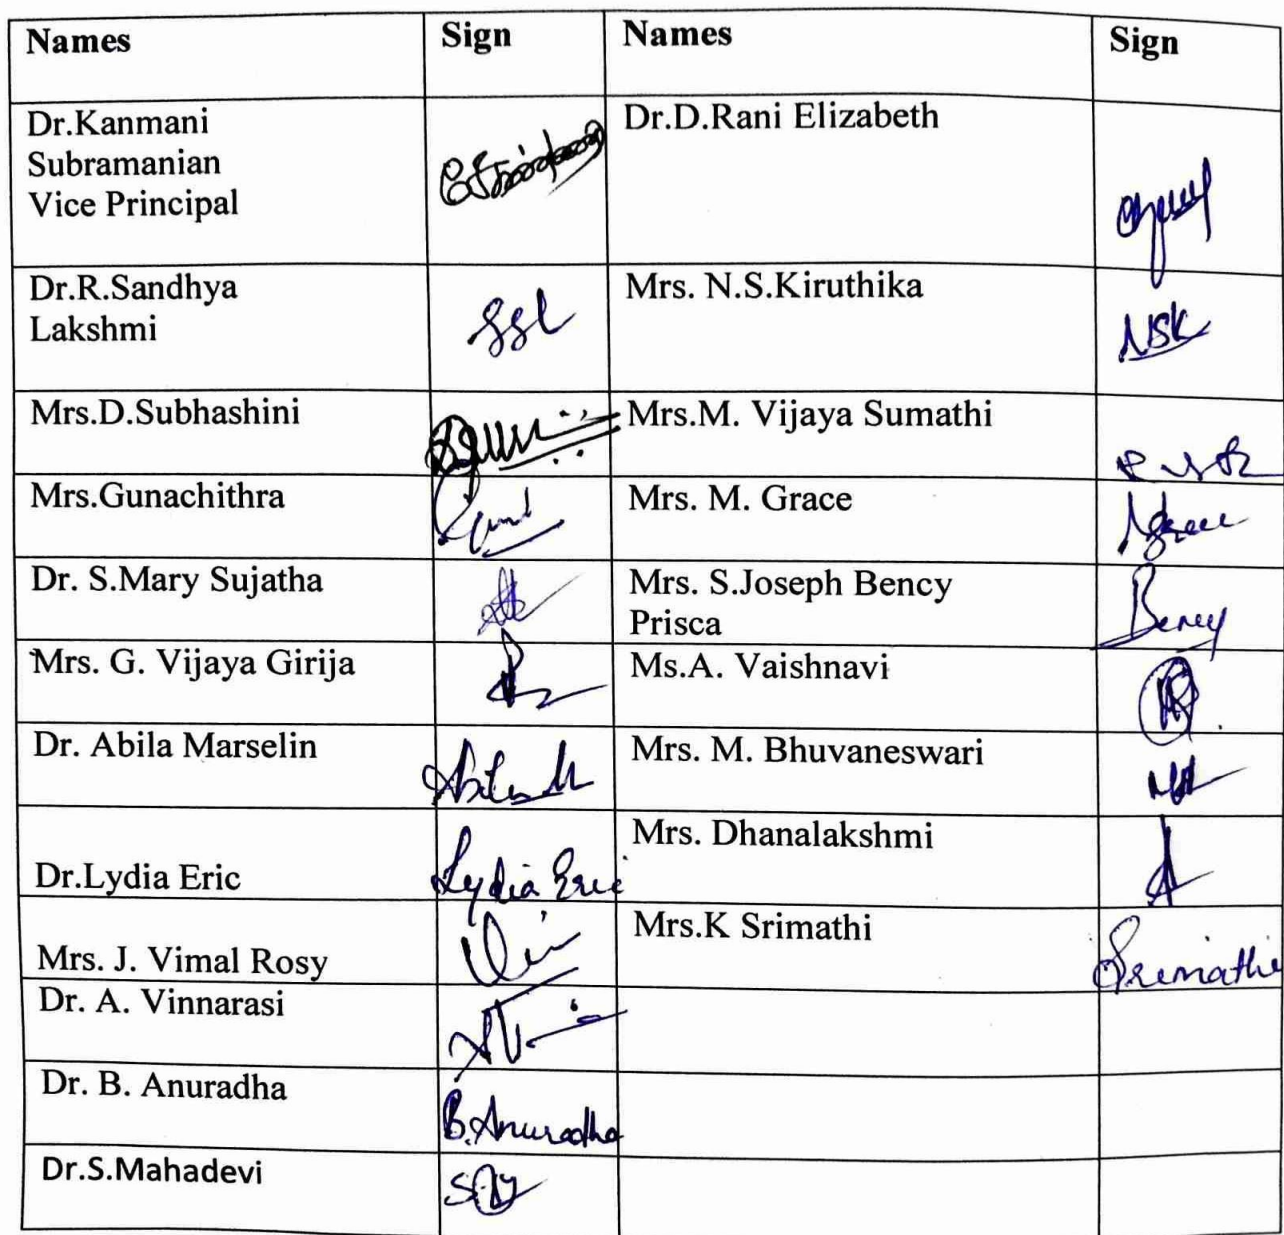 Names Sign Names Sign
Dr.Kanmani
Subramanian
Vice Principal
Dr.D.Rani Elizabeth
Dr.R.Sandhya
Lakshmi
SSL
Mrs. N.S.Kiruthika
NSK
Mrs.D.Subhashini
Mrs.M. Vijaya Sumathi
Mrs.Gunachithra
Mrs. M. Grace
Dr. S.Mary Sujatha
Mrs. S.Joseph Bency
Prisca
Bency
Mrs. G. Vijaya Girija
Ms.A. Vaishnavi
Dr. Abila Marselin
Mrs. M. Bhuvaneswari
Dr.Lydia Eric
Lydia Eric
Mrs. Dhanalakshmi
Mrs. J. Vimal Rosy
Mrs.K Srimathi
Srimathi
Dr. A. Vinnarasi
Dr. B. Anuradha
B.Anuradha
Dr.S.Mahadevi